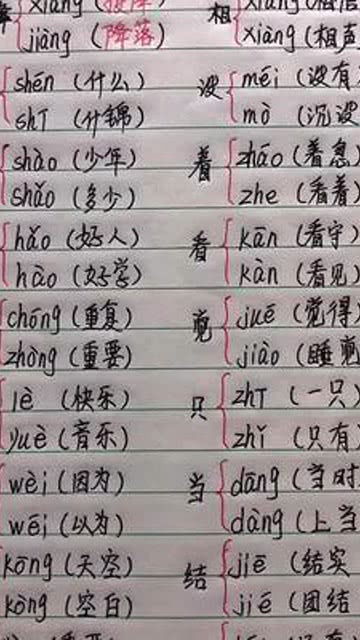 jiàng (降落) 相 xiàng (相声
shén (什么) 没 méi (没有
shí (什锦) mò (沉没
shào (少年) 着 zháo (着急)
shǎo (多少) zhe (看着)
hǎo (好人) 看 kān (看守)
hào (好学) kàn (看见)
chóng (重复) 觉 jué (觉得)
zhòng (重要) jiào (睡觉
lè (快乐) 只 zhī (一只)
yuè (音乐) zhǐ (只有
wèi (因为) 当 dāng (当时
wéi (以为) dàng (上当
kōng (天空) 结 jiē (结实
kòng (空白) jié (团结